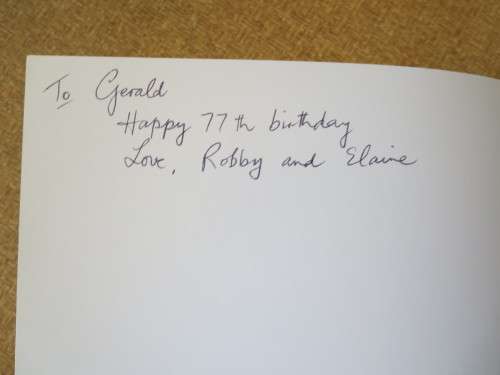 To Gerald
Happy 77th birthday
Love, Robby and Elaine